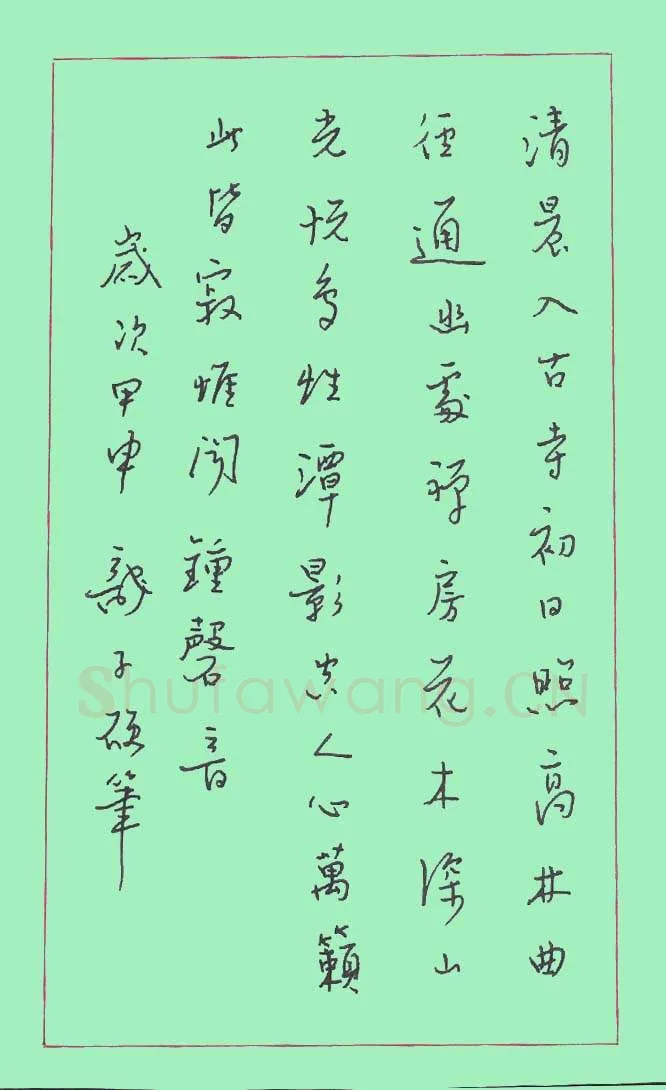 清晨入古寺初日照高林曲
徑通幽處禪房花木深山
光悦鳥性潭影空人心萬籟
此皆寂惟聞鐘磬音
歲次甲申 子硬筆
Shufawang.CN